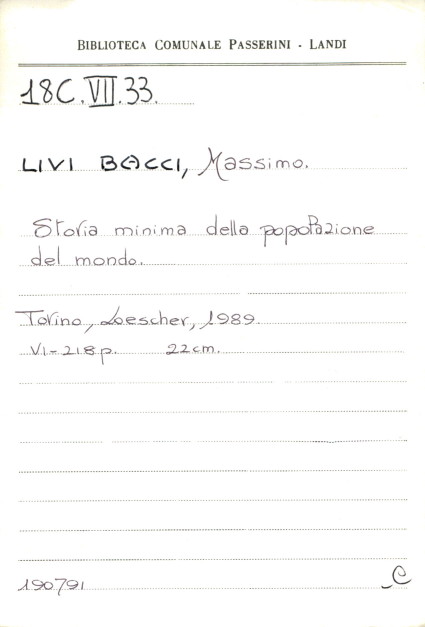 BIBLIOTECA COMUNALE PASSERINI - LANDI
18C.VII.33.
LIVI BACCI, Massimo.
Storia minima della popolazione
del mondo.
Torino, Loescher, 1989.
VI-218p. 22cm.
190791 C